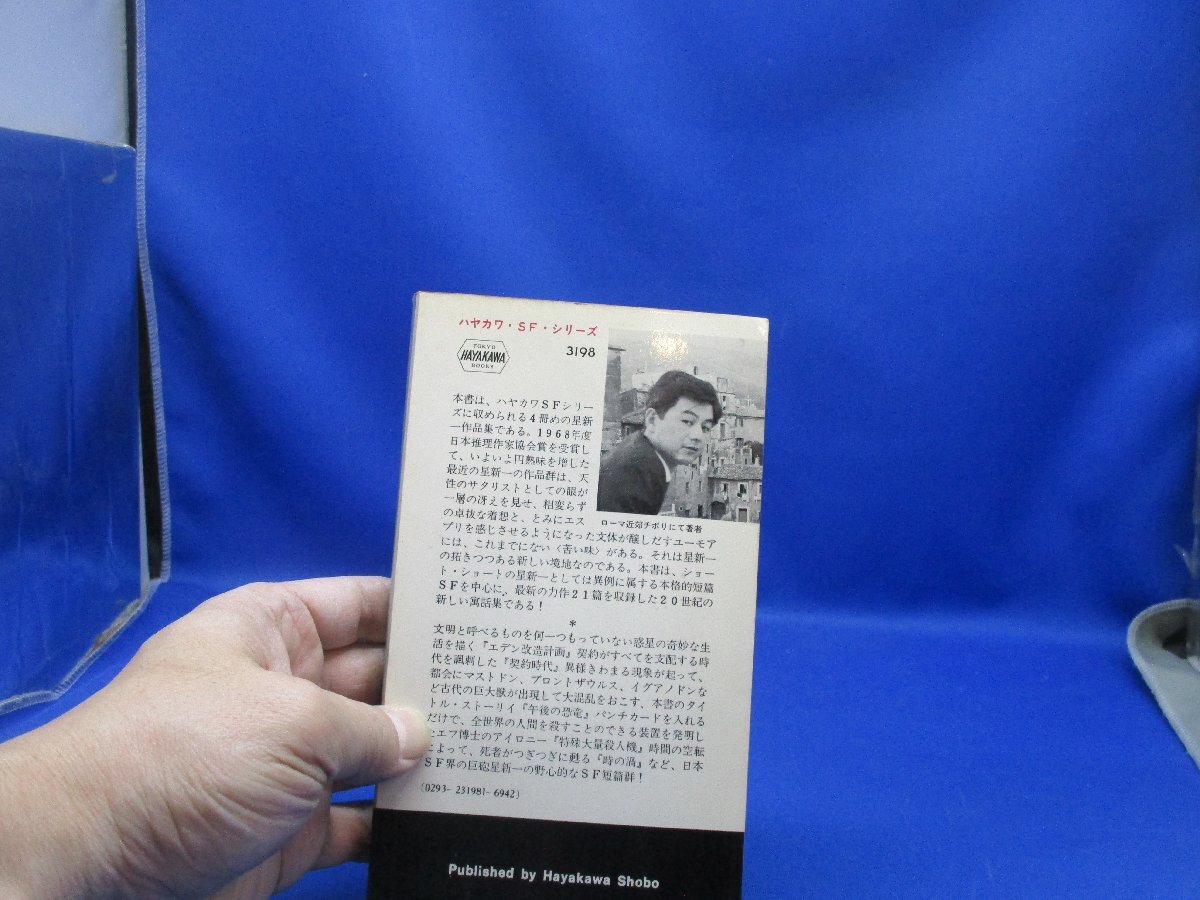 ハヤカワ・SF・シリーズ
TOKYO
HAYAKAWA
BOOKS
3198
本書は、ハヤカワSFシリー
ズに収められる4冊めの星新
一作品集である。1968年度
日本推理作家協会賞を受賞し
て、いよいよ円熟味を増した
最近の星新一の作品群は、天
性のサタリストとしての眼が
一層の冴えを見せ、相変らず
の卓抜な着想と、とみにエス
プリを感じさせるようになった文体が醸しだすユーモア
には、これまでにない〈苦い味〉がある。それは星新一
の拓きつつある新しい境地なのである。本書は、ショー
ト・ショートの星新一としては異例に属する本格的短篇
SFを中心に、最新の力作21篇を収録した20世紀の
新しい寓話集である!
ローマ近郊チボリにて著者
*
文明と呼べるものを何一つもっていない惑星の奇妙な生
活を描く『エデン改造計画』契約がすべてを支配する時
代を諷刺した『契約時代』異様きわまる現象が起って、
都会にマストドン、ブロントザウルス、イグアノドンな
ど古代の巨大獣が出現して大混乱をおこす、本書のタイ
トル・ストーリイ『午後の恐竜』パンチカードを入れる
だけで、全世界の人間を殺すことのできる装置を発明し
たエフ博士のアイロニー『特殊大量殺人機』時間の空転
によって、死者がつぎつぎに甦る『時の渦』など、日本
SF界の巨砲星新一の野心的なSF短篇群!
(0293-231981-6942)
Published by Hayakawa Shobo